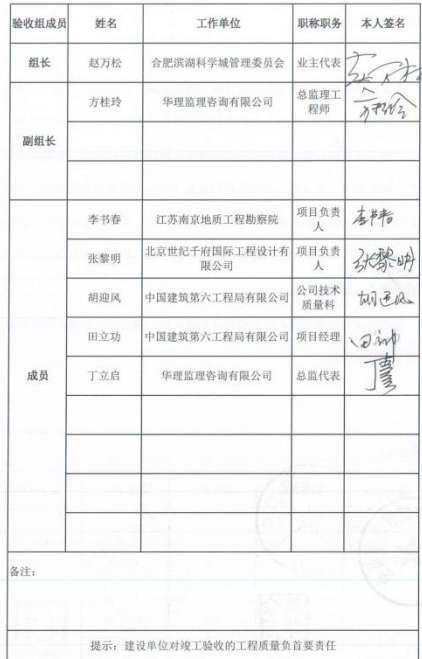 验收组成员 姓名 工作单位 职称职务 本人签名
组长 赵万松 合肥滨湖科学城管理委员会 业主代表
副组长 方桂玲 华理监理咨询有限公司 总监理工程师
成员
李书春 江苏南京地质工程勘察院 项目负责人 李书春
张黎明 北京世纪千府国际工程设计有限公司 项目负责人 张黎明
胡迎风 中国建筑第六工程局有限公司 公司技术质量科 胡迎风
田立功 中国建筑第六工程局有限公司 项目经理
丁立启 华理监理咨询有限公司 总监代表
备注：
提示：建设单位对竣工验收的工程质量负首要责任